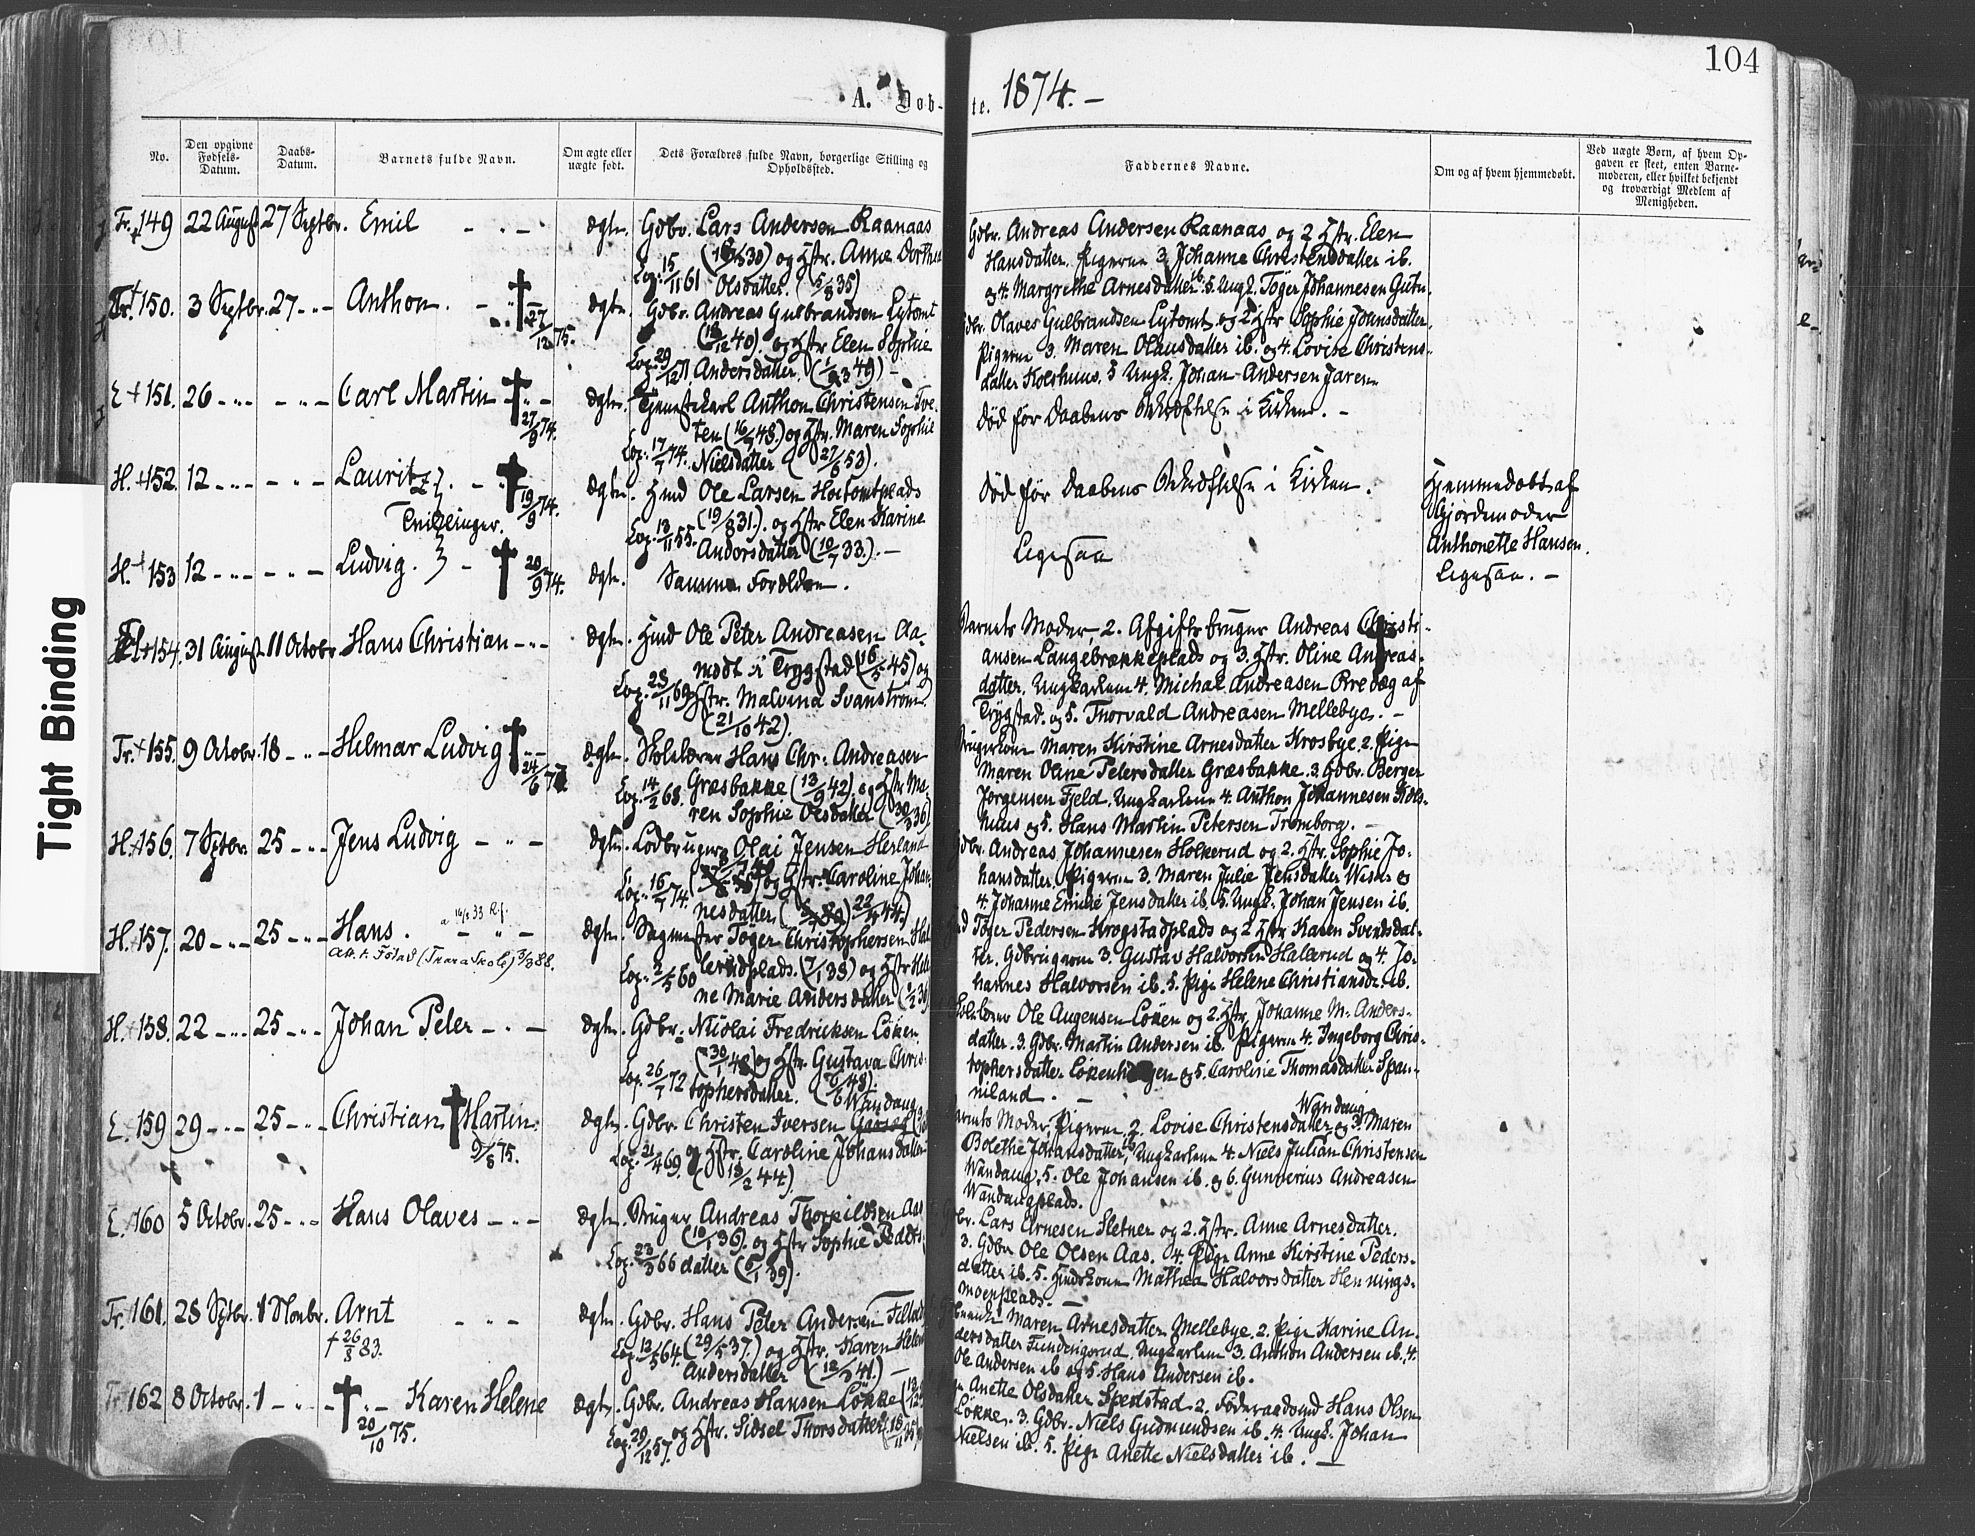 104
A. Døb-
te. 1874. –
No.
Den opgivne Fødsels-Datum.
Daabs-Datum.
Barnets fulde Navn.
Om ægte eller uægte født.
Dets Forældres fulde Navn, borgerlige Stilling og Opholdssted.
Faddernes Navne.
Om og af hvem hjemmedøbt.
Ved uægte Børn, af hvem Op-
gaven er skeet, enten Barne-
moderen, eller hvilket bekjendt
og troværdigt Medlem af
Menigheden.
Tight Binding
Tr. 149 22 August 27 Septbr. Emil ægte. Gdbr. Lars Andersen Raanaas
og Hstr. Anne Dorthea
Olsdatter. (5/8 35)
Gdbr. Andreas Andersen Raanaas og 2 Hstr. Elen
Hansdatter. Pigerne 3 Johanne Christensdatter ib.
og 4. Margrethe Arnesdatter ib. 5. Ungk. Töger Johannesen
Tr. 150. 3 Septbr. 27 Anthon. 27/12 75. ægte. Gdbr. Andreas Gulbrandsen Lytomt
og Hstr. Elen Sophie
29/12 71 Andersdatter.
Olaves Gulbrandsen Lytomt og 2 Hstr Sophie
Pigerne 3. Maren Olausdatter ib. og 4. Lovise Christens-
datter Kolshuus. 5 Ungk. Johan Andersen Jaren
E 151. 26 Carl Martin 27/9 74. ægte. Tjenestekarl Anthon Christensen Tve-
ten (16/7 48.) og Hstr. Maren Sophie
17/7 74. Nielsdatter (27/6 53).
død før Daabens Bekræftelse i Kirken. –
H. 152. 12 Lauritz 19/9 74. ægte. Hmd Ole Larsen
(19/8 31.). og Hstr Elen Karine
13/11 55. Andorsdatter (10/7 33.). –
Tvillinger.
død før Daabens Bekræftelse i Kirken.
Hjemmedøbt af
Gjordemoder
Anthonette Hansen.
H. 153 12 Ludvig. 20/9 74. ægte. Samme Forældre.
Ligesaa
Ligesaa. –
154. 31 August 11 Octobr Hans Christian ægte. Hmd Ole Peter Andreasen Aa-
modt i Trygstad (16/5 45) og
23/11 69 Hstr. Malvina Svanström
(21/10 42).
Barnets Moder, 2. Afgiftsbruger Andreas Christi-
ansen Langebrækkeplads og 3. Hstr. Oline Andreas-
datter. Ungkarlene 4. Michal Andreasen af
Trygstad. og 5. Thorvald Andreasen Mellebye. –
Tr. 155. 9 Octobr. 18 Helmar Ludvig 24/6 ægte. Skolelærer Hans Chr. Andreasen
14/2 68. Græsbakke (13/9 42). og Hstr Ma-
ren Sophie Olsdatter (30/3 36)
Maren Kirstine Arnesdatter Krosbye. 2. Pige
Maren Oline Petersdatter Græsbakke. 3. Gdbr. Berger
Jørgensen Fjeld. Ungkarlene 4. Anthon Johannesen Kols-
huus og 5. Hans Martin Petersen Tromborg. –
H. 156. 7 Septbr. 25 Jens Ludvig ægte. Lodbruger Olai Jensen Hesland
og Hstr. Caroline Johan-
16/7 74. nesdatter
Andreas Johannesen Holkerud og 2. Hstr. Sophie Jo-
hansdatter. Pigerne 3. Maren Julie Jensdatter og
4. Johanne Emilie Jensdatter ib. 5. Ungk. Johan Jensen ib.
H. 157. 20 25 Hans. ægte. Sagmester Töger Christophersen Hal-
lerudplads. og Hstr Hele-
2/5 60 ne Marie Andersdatter
(Trara Skole) 3/3 88.
Töger Pedersen Krogstadplads og 2 Hstr Karen Svendsdat-
ter. Gdbrugerne 3. Gustav Halvorsen Hallerud og 4. Jo-
hannes Halvorsen ib. 5. Pige Helene Christiansdr. ib.
H. 158. 22 25 Johan Peter ægte. Gdbr. Nicolai Fredricksen Löken
(30/1 48) og Hstr. Gustava Chris-
26/7 72 tophersdatter. (6/6 48).
Ole Augensen Löken og 2. Hstr. Johanne M. Anders-
datter. 3. Gdbr. Martin Andersen ib. Pigerne 4. Ingeborg Chris-
tophersdatter og 5. Caroline Thomasdatter Span-
niland. –
E. 159 29 25 Christian Martin. 9/8 75. ægte. Gdbr. Christen Iversen Wandaug
21/4 69. og Hstr. Caroline Johansdatter
(13/2 44).
Barnets Moder, Pigerne 2. Lovise Christensdatter Wandaug og 3. Maren
Bolethe Johansdatter ib. Ungkarlene 4. Niels Julian Christensen
Wandaug, 5. Ole Johansen ib. og 6. Gunnerius Andreasen
Wandaugplads.
E. 160 5 Octobr. 25 Hans Olaves ægte. Bruger Andreas Thorkildsen Aas
(10/1 36). og Hstr Sophie Peders-
23/3 66 datter (6/1 39).
Gdbr. Lars Arnesen Sletner og 2. Hstr. Anne Arnesdatter.
3. Gdbr Ole Olsen Aas. 4. Pige Anne Kirstine Peders-
datter ib. 5. Hmdskone Mathea Halvorsdatter Hennings-
moenplads. –
Tr. 161. 28 Septbr. 1 Novbr. Arnt ægte. Gdbr. Hans Peter Andersen
† 26/3 83. 12/5 64. (29/5 37.) og Hstr. Karen Helene
Andersdatter (12/7 41.) –
Maren Arnesdatter Mellebye. 2. Pige Karine An-
dersdatter Fundingsrud. Ungkarlene 3. Anthon Andersen ib. 4.
Ole Andersen ib og 5. Hans Andersen ib.
Tr 162 8 Octobr. 1 Karen Helene 20/10 75. ægte. Gdbr. Andreas Hansen Løkke
29/12 57. og Hstr. Sidsel Thorsdatter
Anette Olsdatter Spelstad. 2. Föderaadsmd Hans Olsen
Løkke. 3. Gdbr. Niels Gudmundsen ib. 4. Ungk. Johan
Nielsen ib. 5. Pige Anette Nielsdatter ib. –